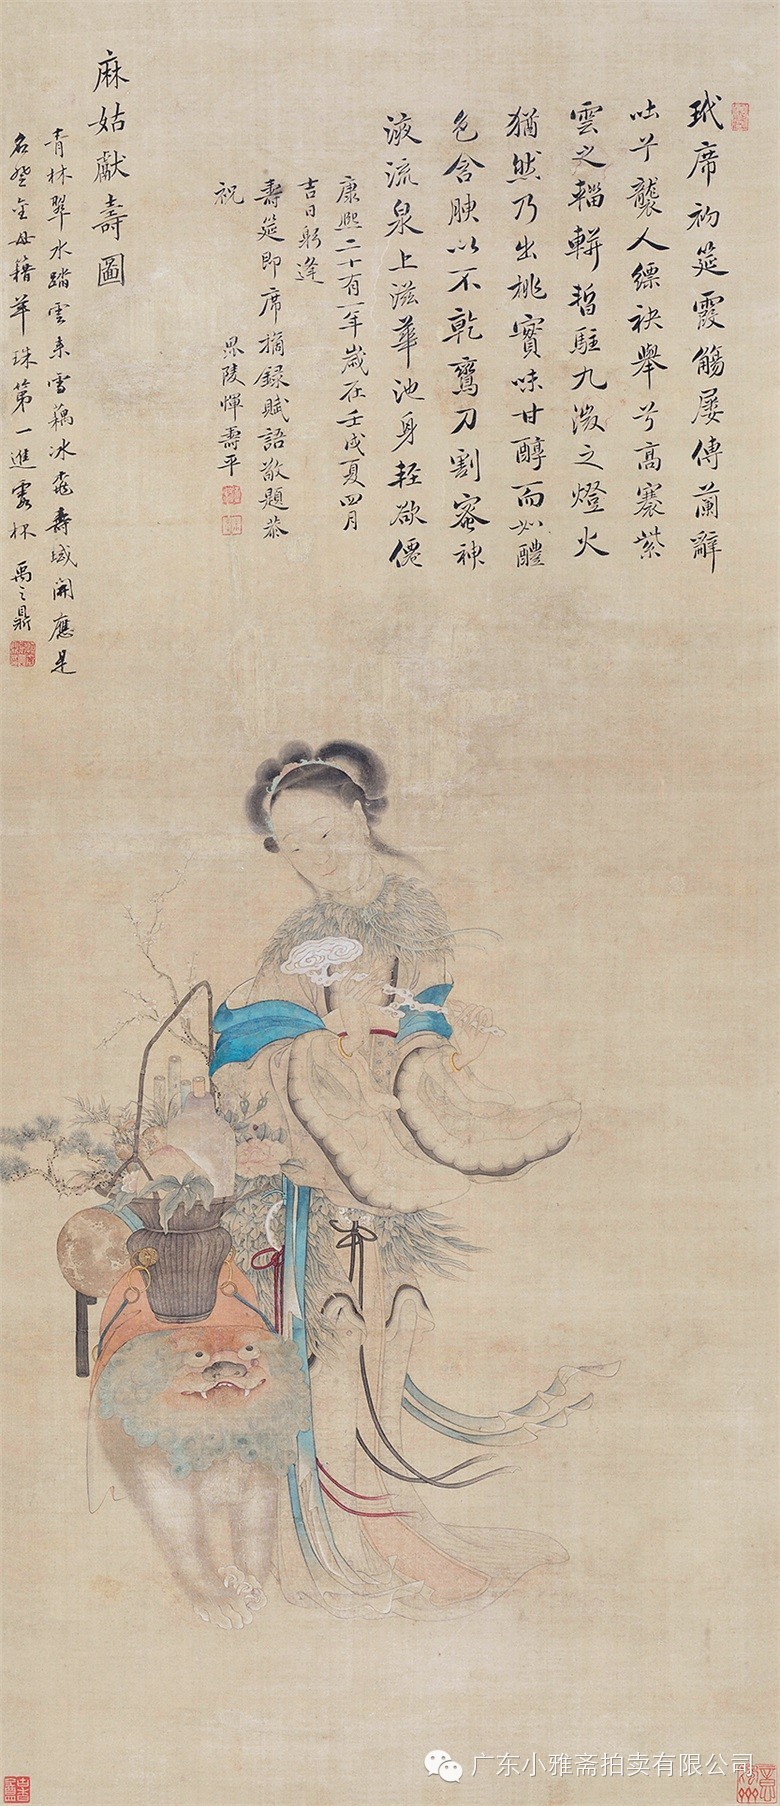 玳席初筵霞觴屡傳蘭辭
吐兮襲人縹袂舉兮高褰紫
雲之輜軿暫駐九微之燈火
猶然乃出桃實味甘醇而如醴
色含腴以不乾鸞刀割蜜神
液流泉上滋華池身輕欲僊
康熙二十有一年歲在壬戌夏四月
吉日躬逢
壽筵即席摘錄賦語敬題恭
祝
毘陵惲壽平
麻姑獻壽圖
青林翠水踏雲來雪藕冰桃壽域開應是
名登金母籍羊珠第一進霞杯 禹之鼎
广东小雅斋拍卖有限公司